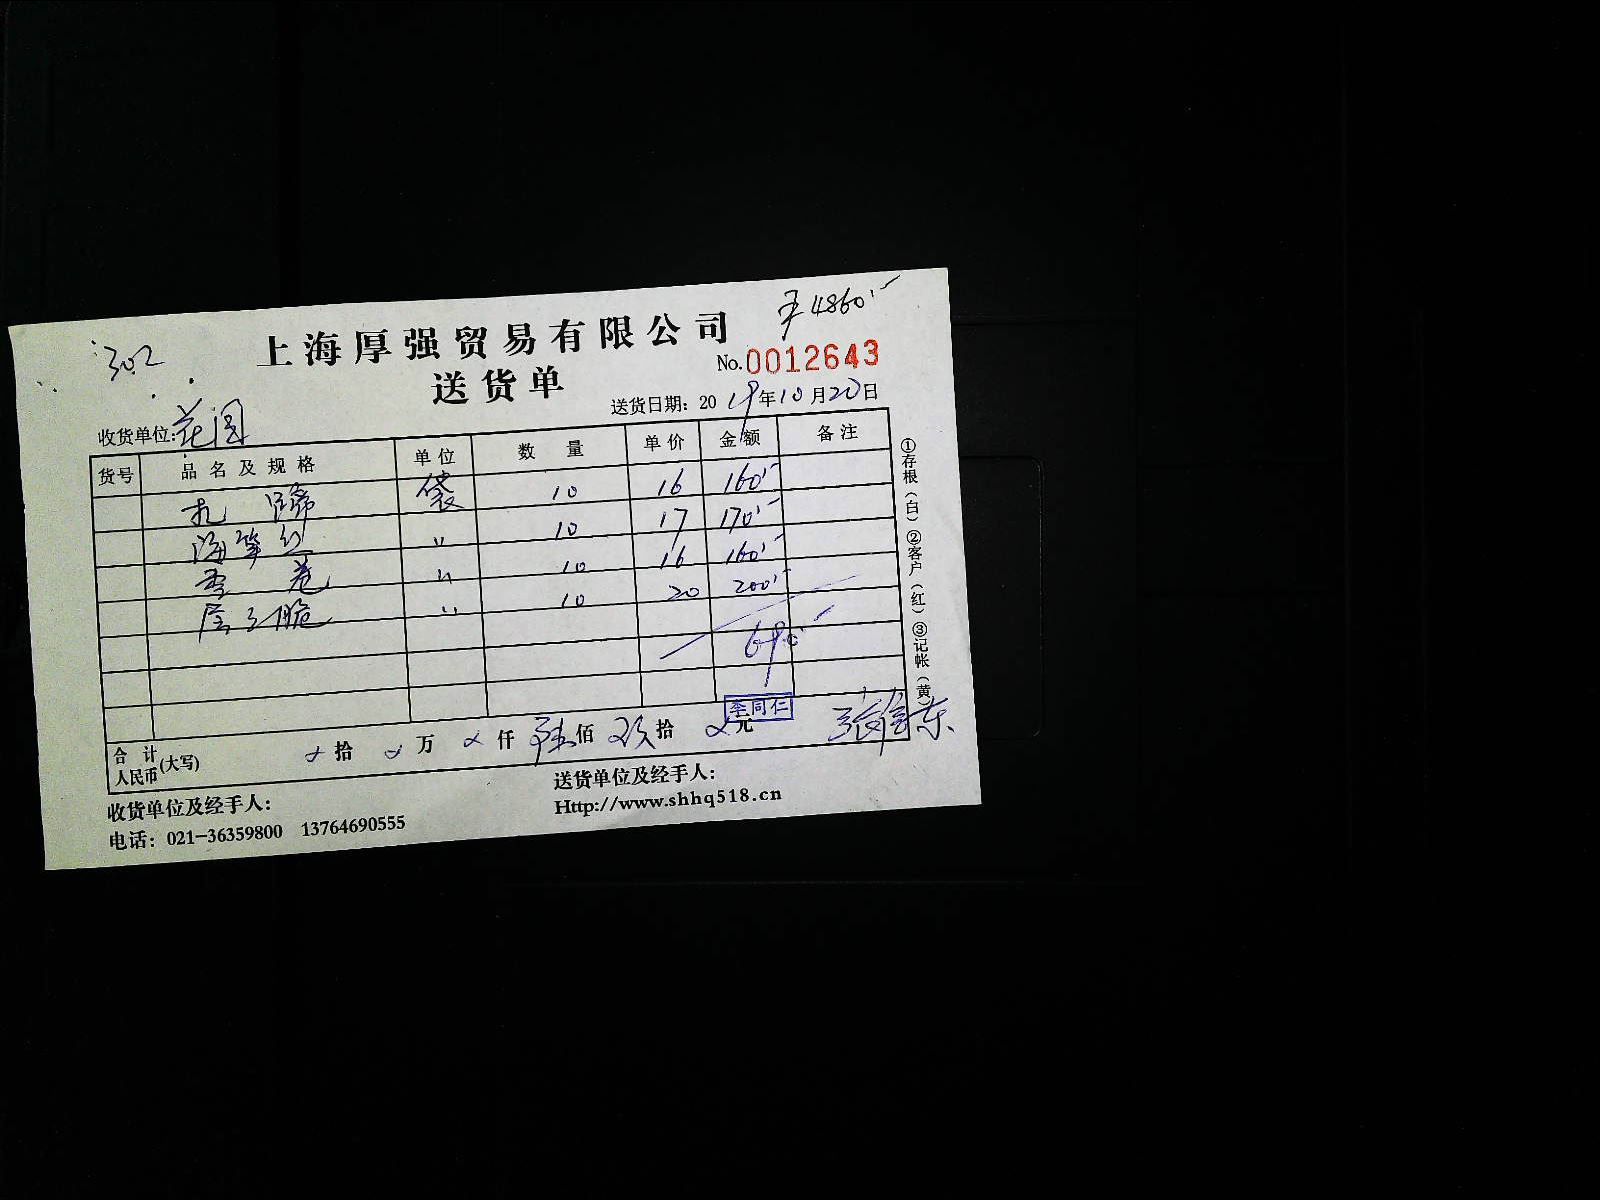 4860
302
上海厚强贸易有限公司
No.0012643
送货单
送货日期：2019年10月20日
收货单位：花园
货号 品名及规格 单位 数量 单价 金额 备注
扎蹄 袋 10 16 160
海笋丝 〃 10 17 170
素卷 〃 10 16 160
〃 10 20 200
690
李同仁
合计人民币(大写) 拾 万 仟 陆佰 玖拾 元
收货单位及经手人：
送货单位及经手人：
电话：021-36359800 13764690555
Http://www.shhq518.cn
①存根（白）②客户（红）③记帐（黄）